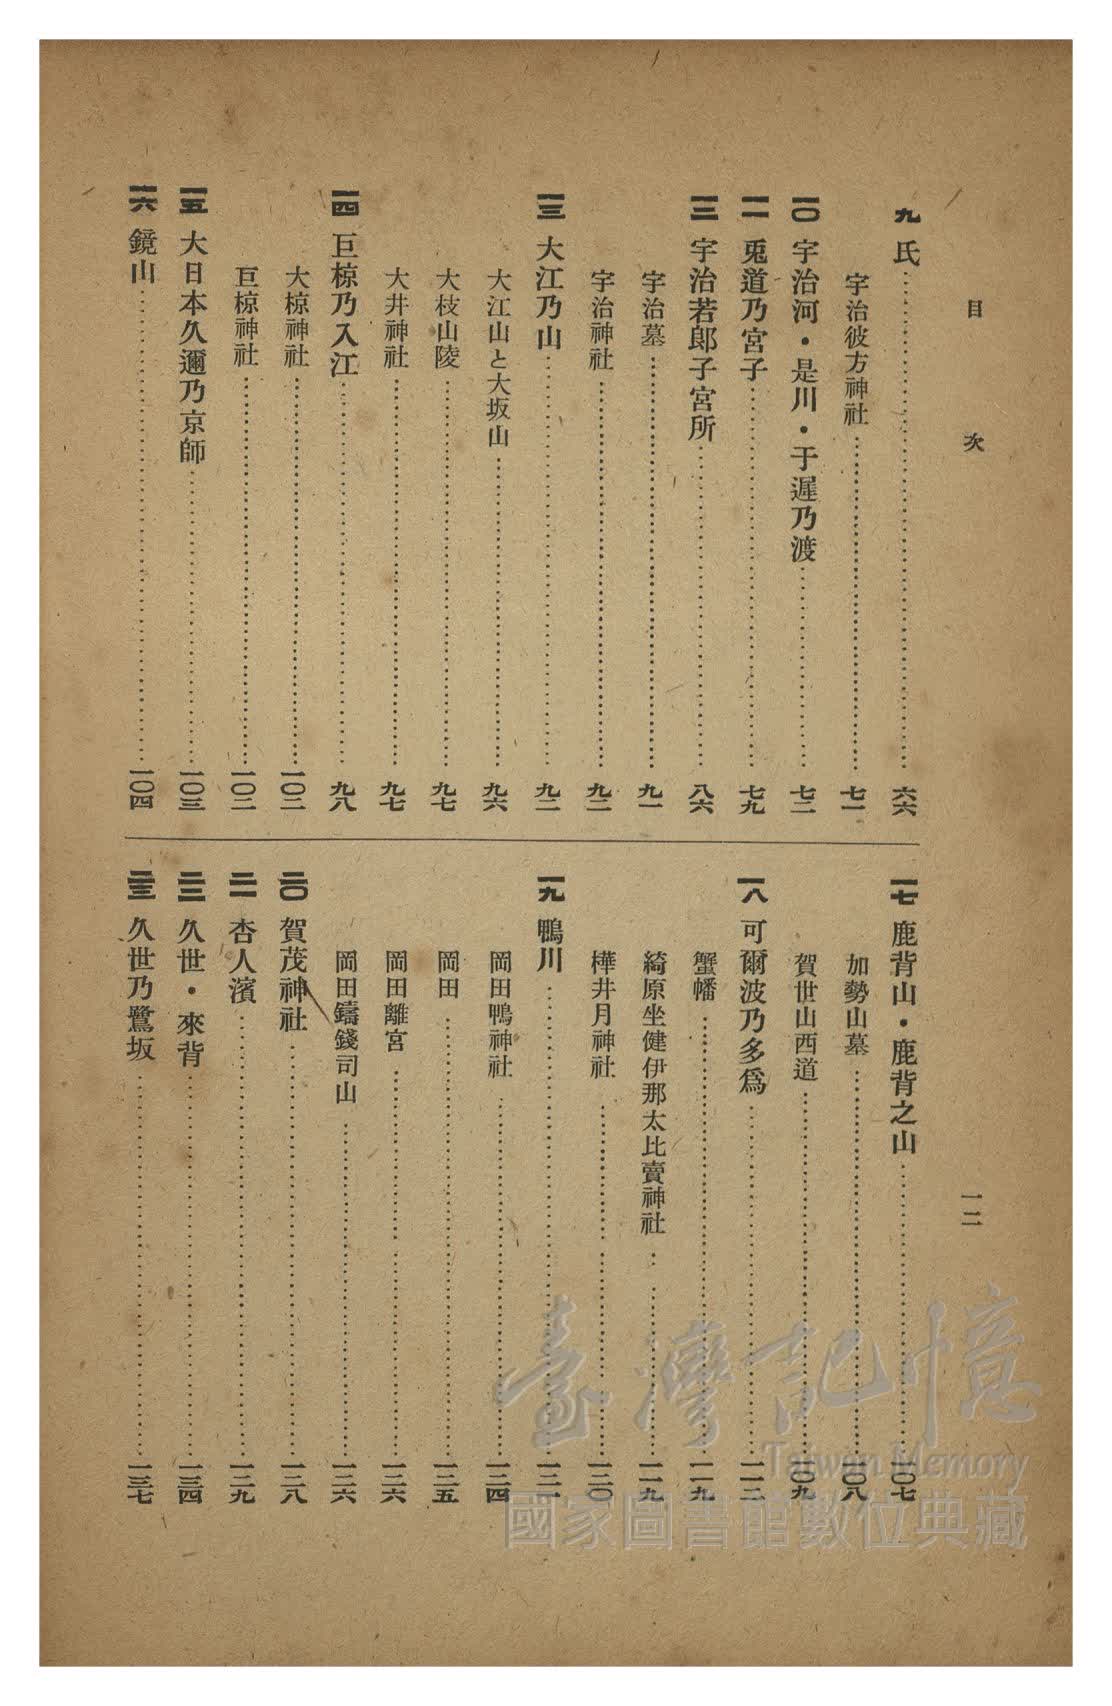 目次
一二
九 氏 六六
宇治彼方神社 七一
一〇 宇治河・是川・于遲乃渡 七二
一一 兎道乃宮子 七九
一二 宇治若郞子宮所 八六
宇治墓 九一
宇治神社 九二
一三 大江乃山 九二
大江山と大坂山 九六
大枝山陵 九七
大井神社 九七
一四 巨椋乃入江 九八
大椋神社 一〇二
巨椋神社 一〇二
一五 大日本久邇乃京師 一〇三
一六 鏡山 一〇四
一七 鹿背山・鹿背之山 一〇七
加勢山墓 一〇八
賀世山西道 一〇九
一八 可爾波乃多爲 一一二
蟹幡 一一九
綺原坐健伊那太比賣神社 一一九
樺井月神社 一二〇
一九 鴨川 一二一
岡田鴨神社 一二四
岡田 一二五
岡田離宮 一二六
岡田鑄錢司山 一二六
二〇 賀茂神社 一二八
二一 杏人濱 一二九
二二 久世・來背 一三四
二三 久世乃鷺坂 一三七
臺灣記憶
Taiwan Memory
國家圖書館數位典藏